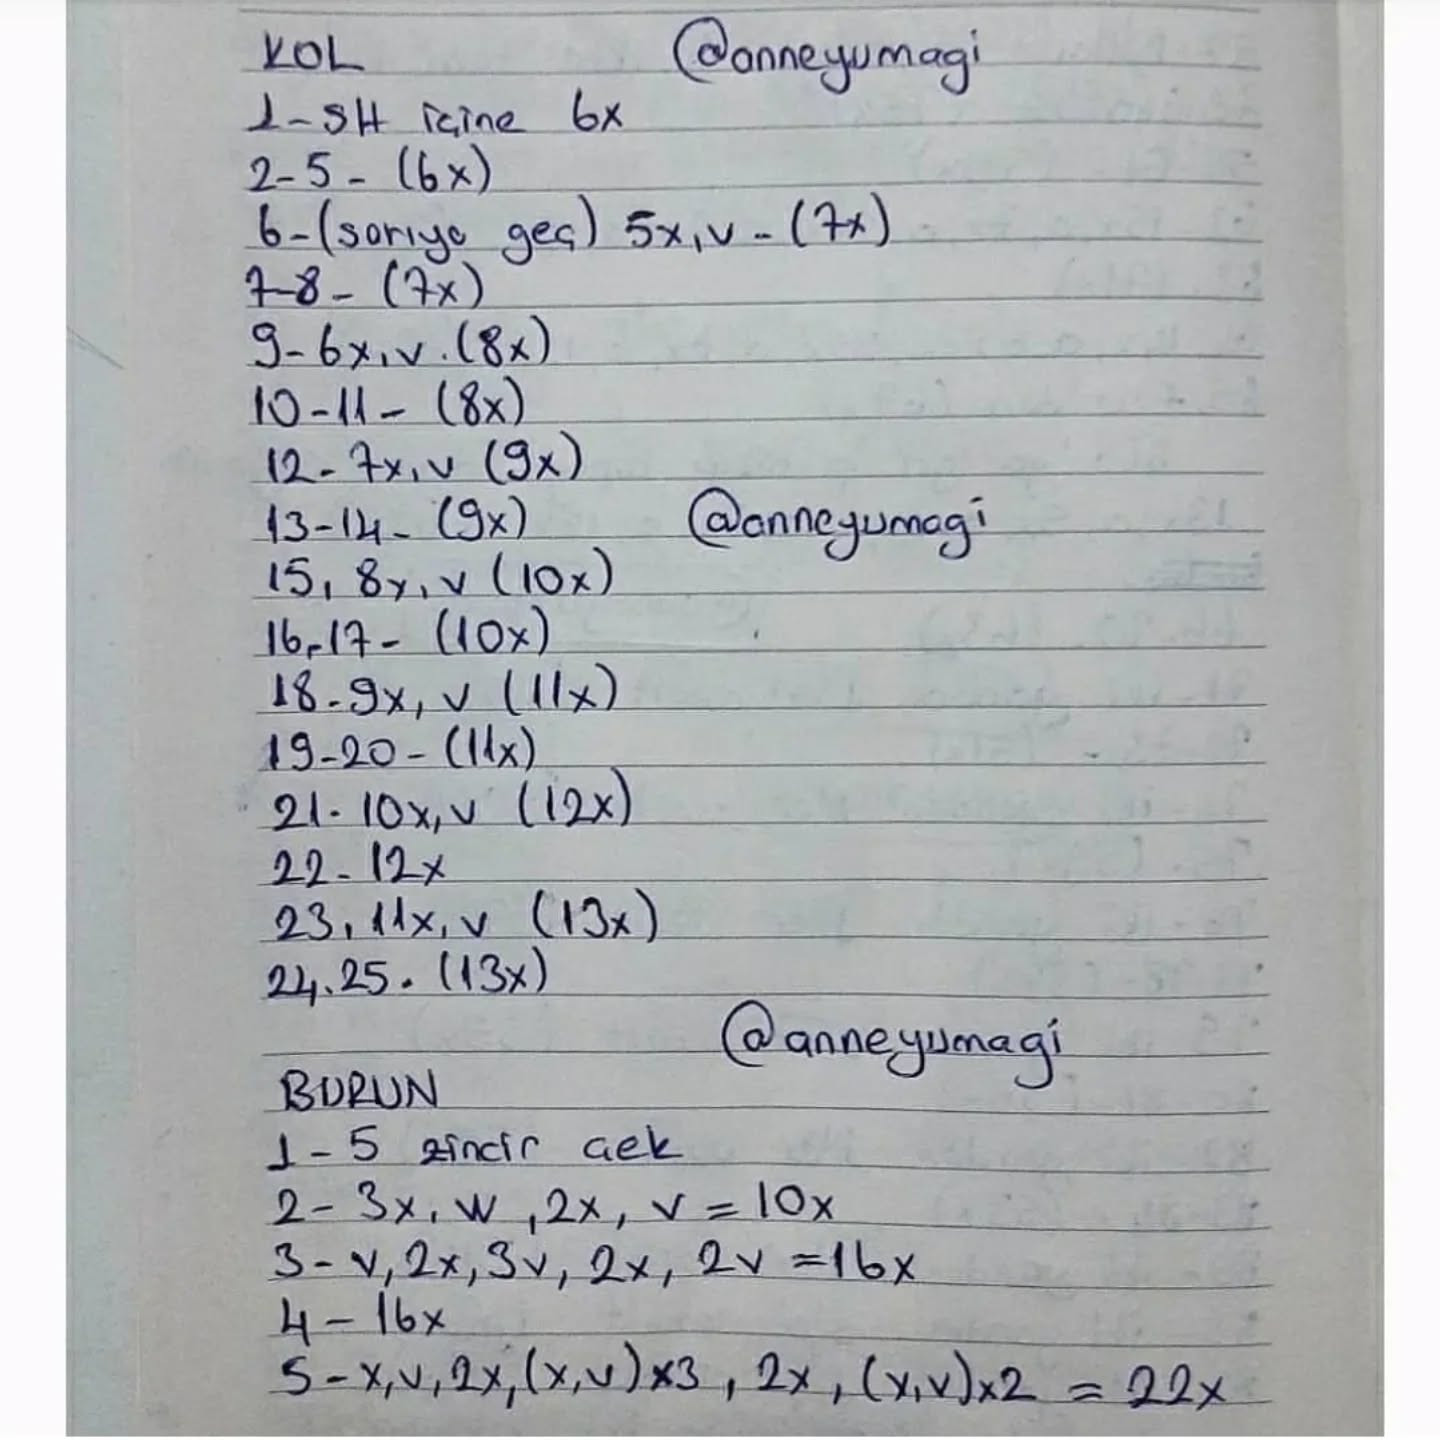 KOL @anneyumagi
1-SH içine 6x
2-5- (6x)
6-(sarıya geç) 5x,v-(7x)
7-8- (7x)
9-6x,v.(8x)
10-11- (8x)
12-7x,v (9x)
13-14- (9x) @anneyumagi
15, 8x,v (10x)
16-17- (10x)
18-9x, v (11x)
19-20-(11x)
21- 10x,v (12x)
22- 12x
23, 11x,v (13x)
24.25. (13x)
@anneyumagi
BURUN
1-5 zincir çek
2-3x, w ,2x, v =10x
3-v,2x,3v, 2x, 2v =16x
4-16x
5-x,v,2x,(x,v)x3, 2x, (x,v)x2 = 22x